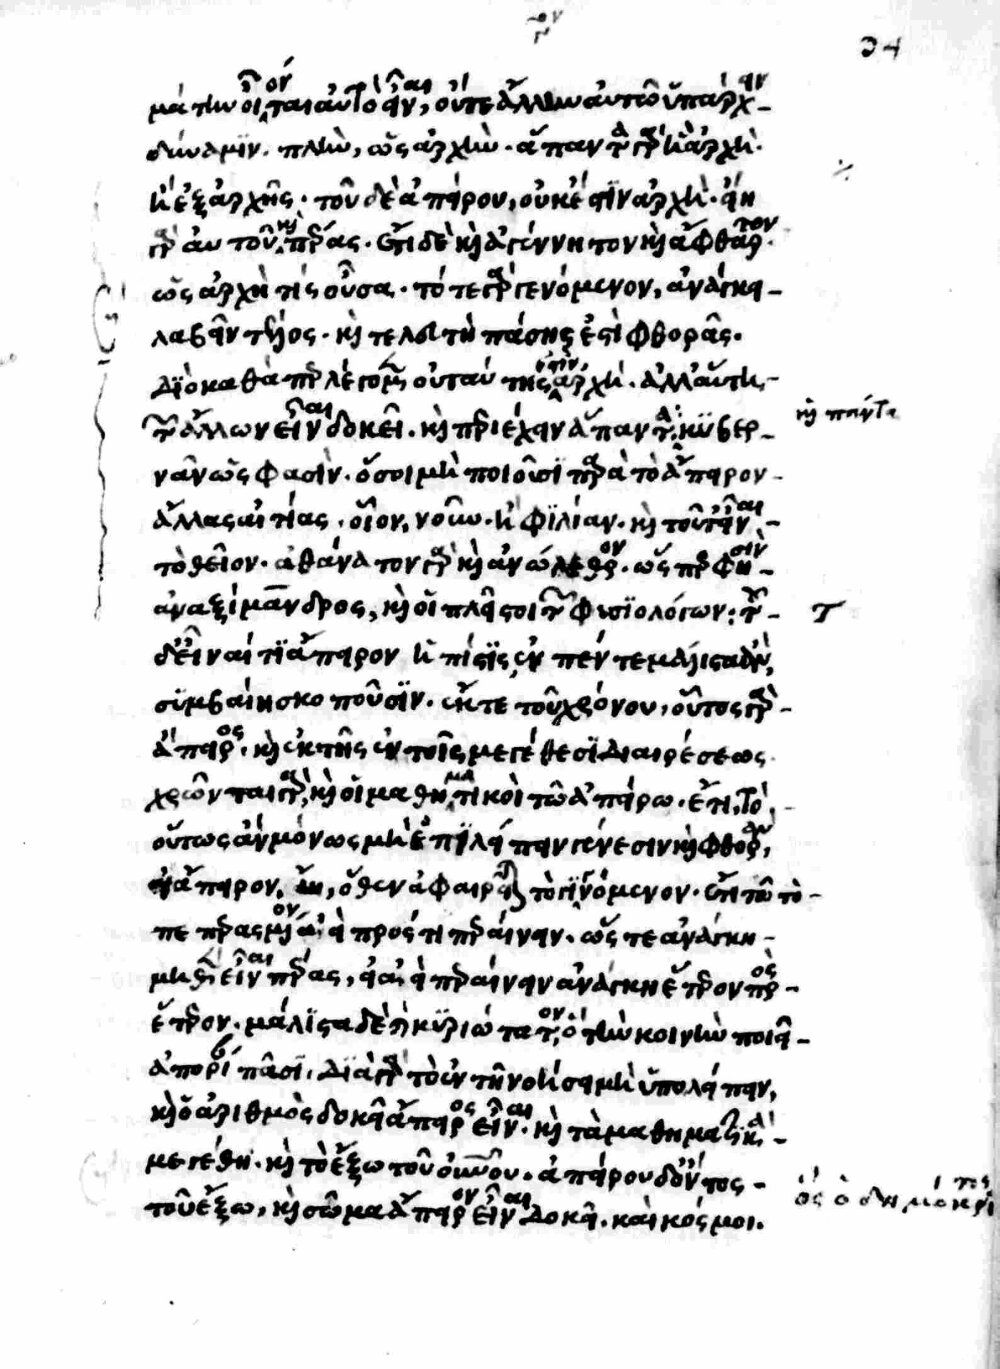 34
μάτην οἷόν τε αὐτὸ εἶναι, οὔτε ἄλλην αὐτῷ ὑπάρχειν
δύναμιν. πλὴν, ὡς ἀρχήν. ἅπαντα γὰρ ἢ ἀρχὴ.
ἢ ἐξ ἀρχῆς. τοῦ δὲ ἀπείρου, οὐκ ἔστιν ἀρχή. εἴη
γὰρ ἂν αὐτοῦ καὶ πέρας. ἔτι δὲ καὶ ἀγέννητον καὶ ἄφθαρτον.
ὡς ἀρχή τίς οὖσα. τό τε γὰρ γενόμενον, ἀνάγκη
λαβεῖν τέλος. καὶ τελευτὴ πάσης ἐστὶ φθορᾶς.
διὸ καθάπερ λέγομεν οὐ ταύτης ἐστὶν ἀρχή. ἀλλ' αὕτη
τῶν ἄλλων εἶναι δοκεῖ. καὶ περιέχειν ἅπαντα. κυβερ
καὶ πάντα
νᾶν ὥς φασιν. ὅσοι μὴ ποιοῦσι παρὰ τὸ ἄπειρον
ἄλλας αἰτίας. οἷον, νοῦν. ἢ φιλίαν. καὶ τοῦτ' εἶναι
τὸ θεῖον. ἀθάνατον γὰρ καὶ ἀνώλεθρον. ὥς περ φησὶν
ἀναξίμανδρος, καὶ οἱ πλεῖστοι τῶν φυσιολόγων. τοῦ
δ' εἶναί τι ἄπειρον ἡ πίστις, ἐκ πέντε μάλιστ' ἂν
συμβαίη σκοποῦσιν. ἔκ τε τοῦ χρόνου, οὗτος γὰρ
ἄπειρος. καὶ ἐκ τῆς ἐν τοῖς μεγέθεσι διαιρέσεως
χρῶνται γὰρ, καὶ οἱ μαθηματικοὶ τῷ ἀπείρῳ. ἔτι, τὸ
οὕτως ἂν μόνως μὴ ἐπιλείπειν γένεσιν καὶ φθοράν,
εἰ ἄπειρον, εἴη, ὅθεν ἀφαιρεῖται τὸ γινόμενον. ἔτι τῷ τὸ
πεπερασμένον ἀεὶ πρός τι περαίνειν. ὥς τε ἀνάγκη
μηδὲν εἶναι πέρας, εἰ ἀεὶ περαίνειν ἀνάγκη ἕτερον πρὸς
ἕτερον. μάλιστα δὲ καὶ κυριώτατον, ὃ τὴν κοινὴν ποιεῖ
ἀπορίαν πᾶσι. διὰ γὰρ τὸ ἐν τῇ νοήσει μὴ ὑπολείπειν,
καὶ ὁ ἀριθμὸς δοκεῖ ἄπειρος εἶναι. καὶ τὰ μαθηματικὰ
μεγέθη. καὶ τὸ ἔξω τοῦ οὐρανοῦ. ἀπείρου δ' ὄντος
τοῦ ἔξω, καὶ σῶμα ἄπειρον εἶναι δοκεῖ. καὶ κόσμοι.